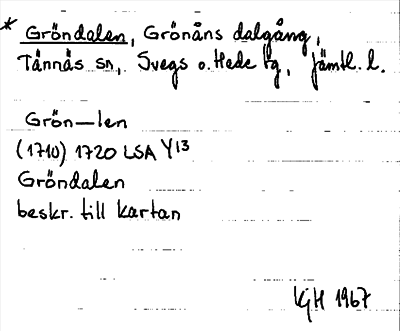 * Gröndalen, Grönåns dalgång,
Tännäs sn, Svegs o. Hede tg, Jämtl. l.
Grön—len
(1710) 1720 LSA Y13
Gröndalen
beskr. till kartan
KGH 1967